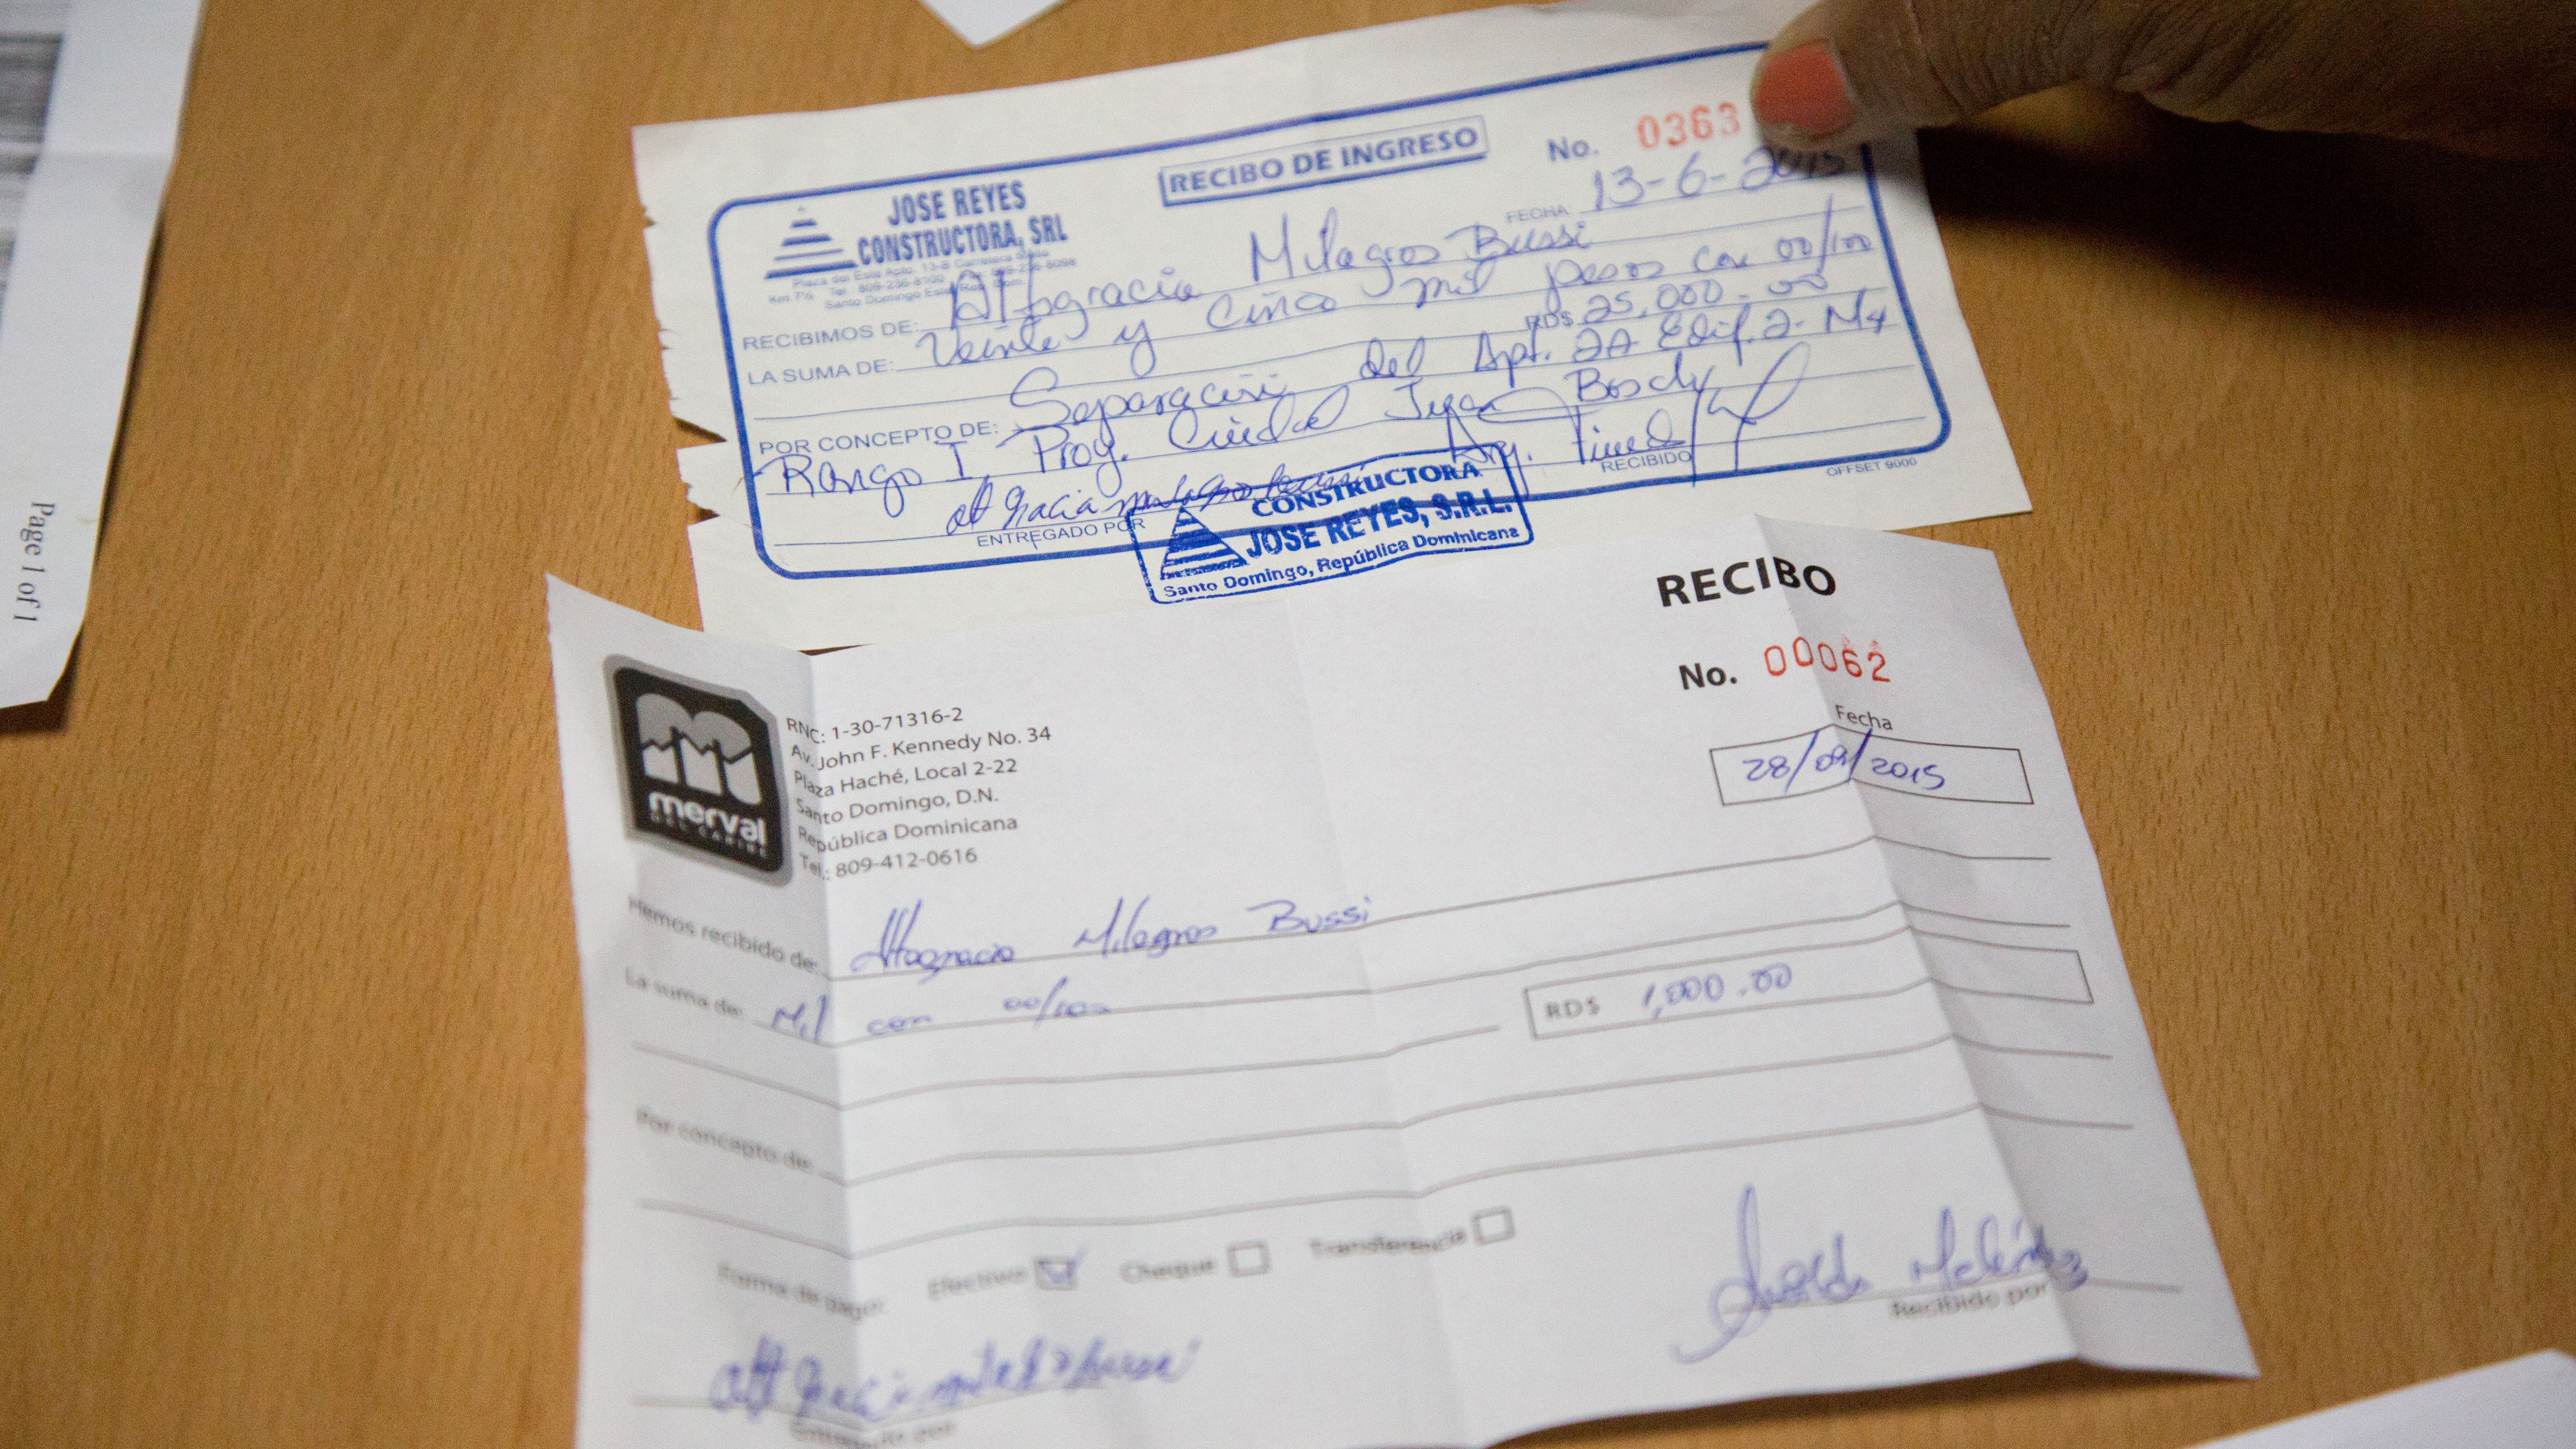 Page 1 of 1
JOSE REYES
CONSTRUCTORA, SRL
Plaza del Este Apto. 13-B Carretera Mella
Km 7½ Tel.: 809-236-8100
Santo Domingo Este, Rep. Dom.
RECIBO DE INGRESO
No. 0363
FECHA: 13-6-2015
RECIBIMOS DE: Altagracia Milagros Bussi
LA SUMA DE: Veinte y Cinco mil pesos con 00/100
RD$ 25,000.00
POR CONCEPTO DE: Separación del Apt. 2A Edif. 2- M4
Rango I Proy. Ciudad Juan Bosch
RECIBIDO
ENTREGADO POR
OFFSET 9000
CONSTRUCTORA
JOSE REYES, S.R.L.
Santo Domingo, República Dominicana
RECIBO
No. 00062
Fecha
28/09/2015
merval
DEL CARIBE
RNC: 1-30-71316-2
Av. John F. Kennedy No. 34
Plaza Haché, Local 2-22
Santo Domingo, D.N.
República Dominicana
Tel.: 809-412-0616
Hemos recibido de: Altagracia Milagros Bussi
La suma de: Mil con 00/100
RD$ 1,000.00
Por concepto de:
Forma de pago: Efectivo Cheque Transferencia
Recibido por
Entregado por